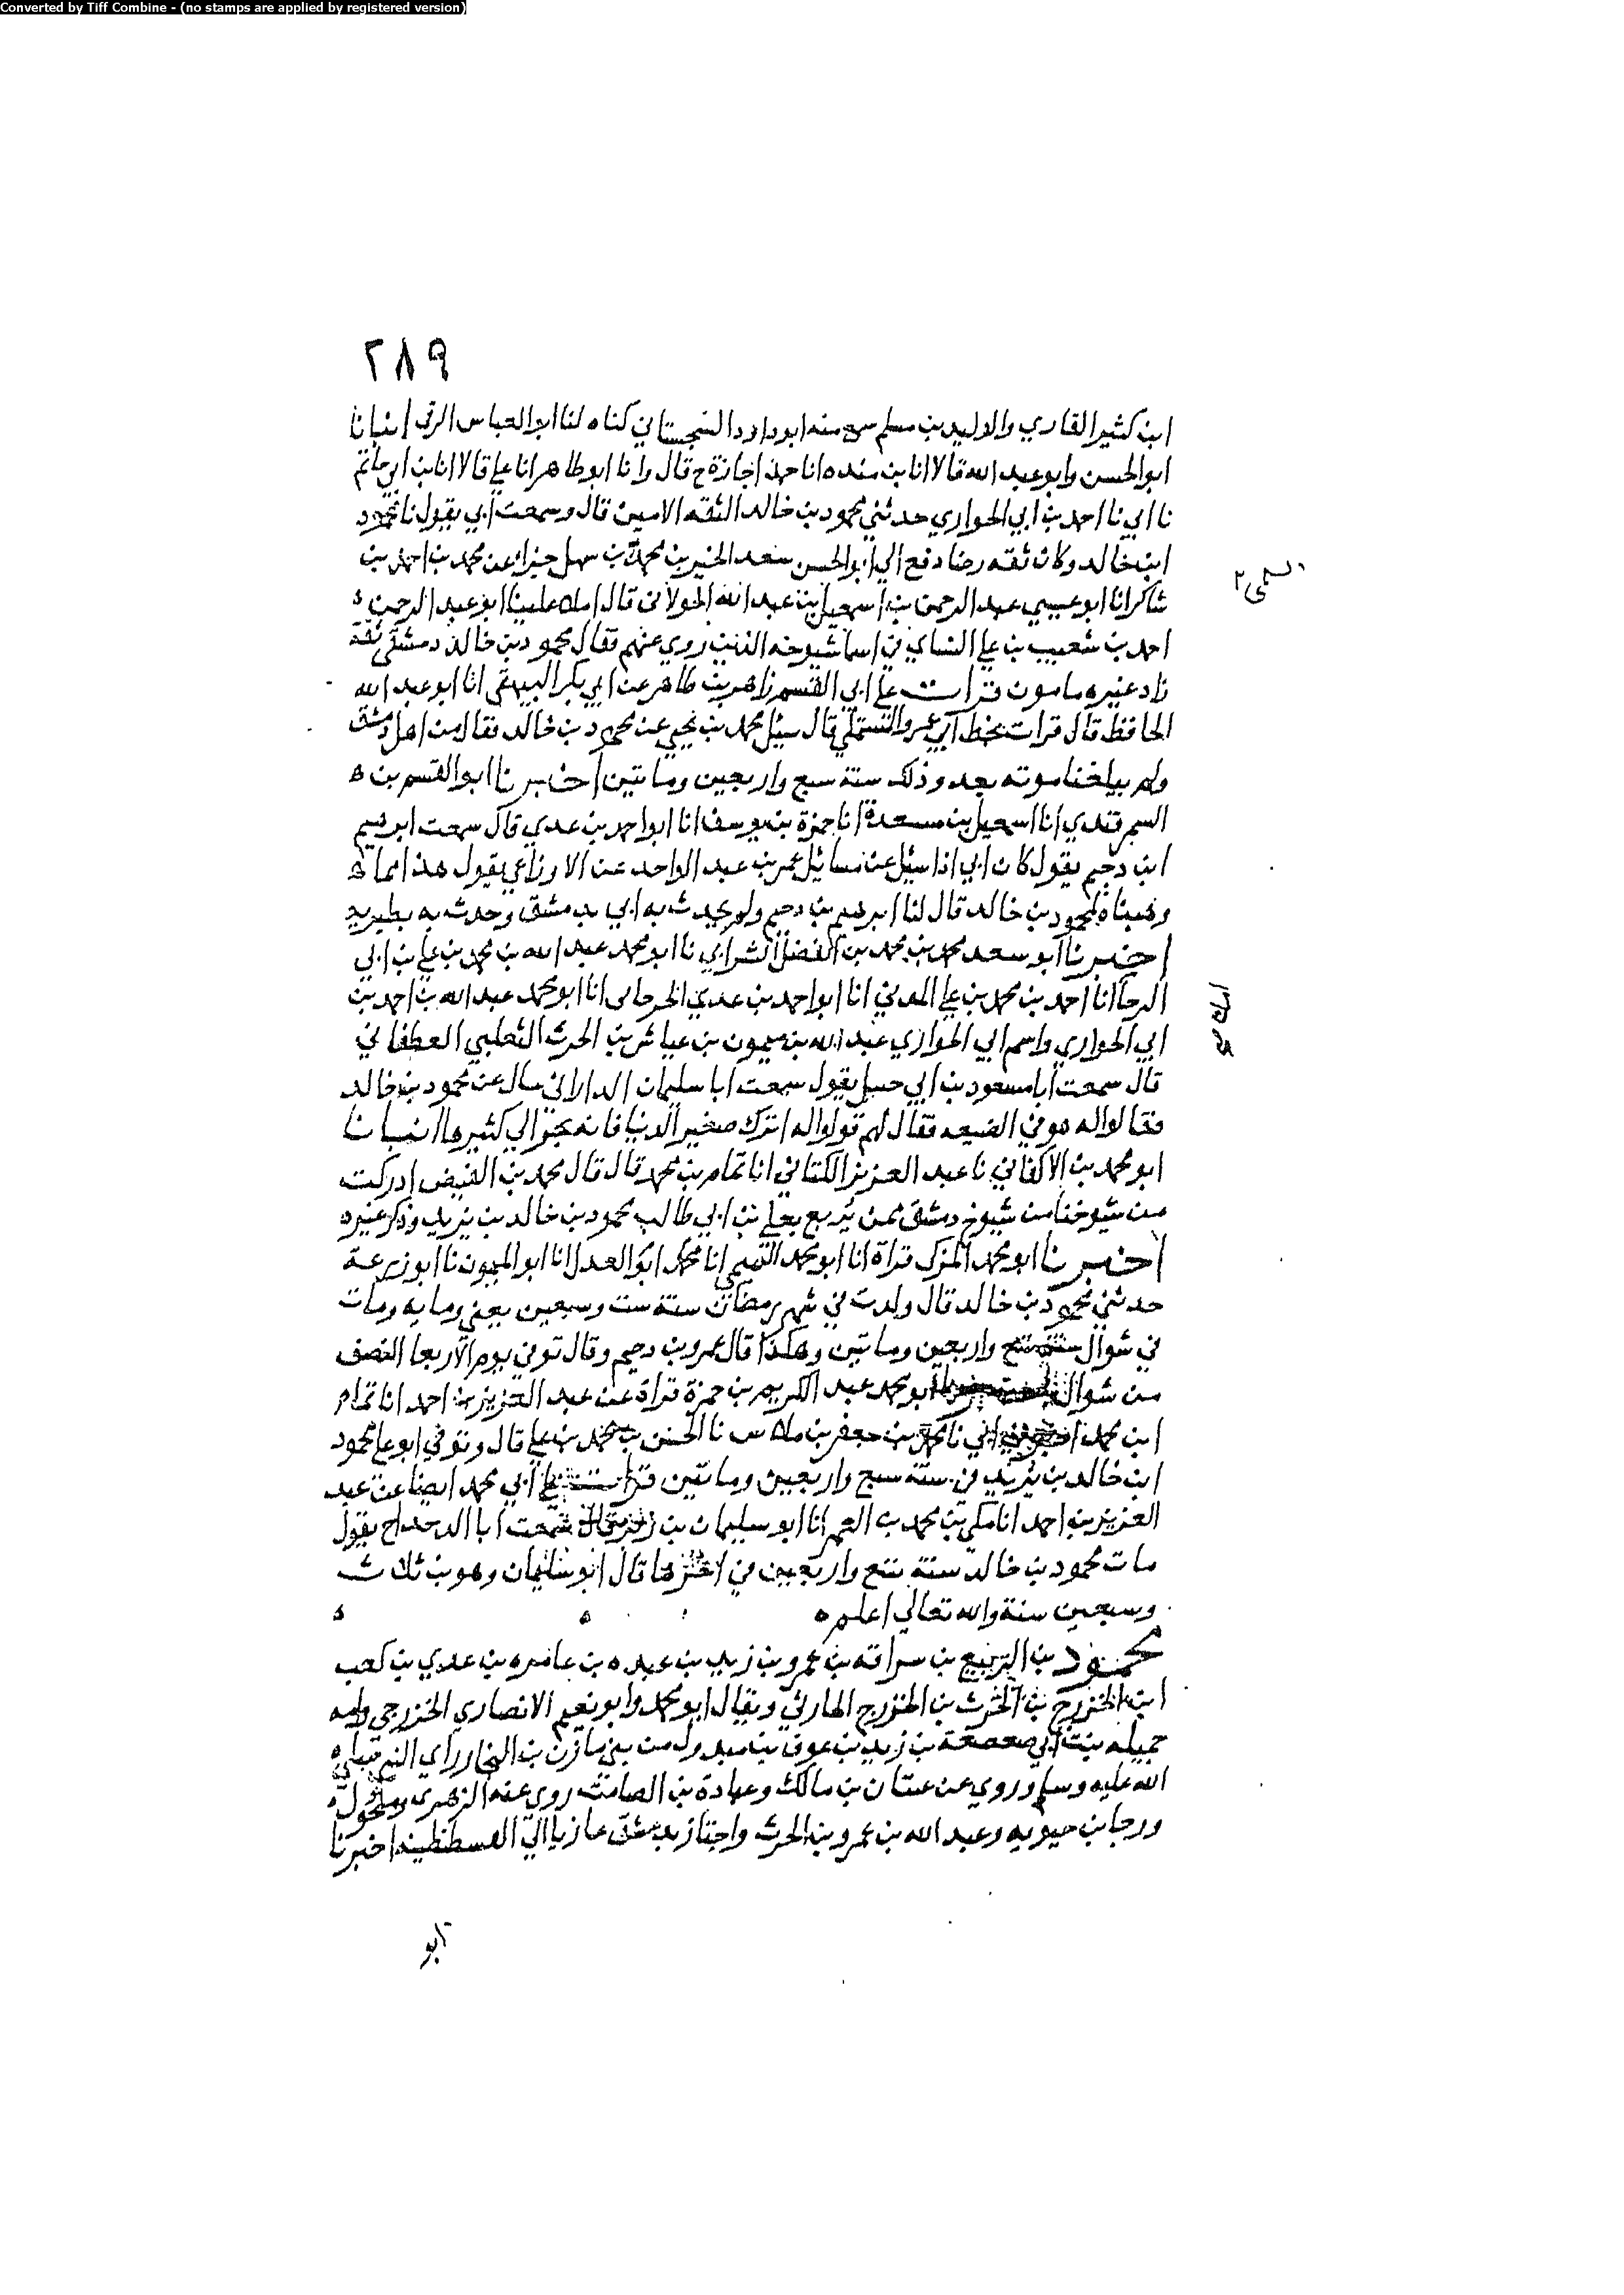 Converted by Tiff Combine - (no stamps are applied by registered version)
٢٨٩
ابن كثير القاري والوليد بن مسلم سمع منه ابو داود السجستاني كناه لنا ابو العباس الرقي انبانا
ابو الحسن وابو عبد الله قالا انا بن منده انا حمد اجازة ح قال وانا ابو طاهر انا علي قالا انا بن ابي حاتم
نا ابي نا احمد بن ابي الحواري حدثني محمود بن خالد الثقه الامين قال وسمعت ابي يقول نا محمود
ابن خالد وكان ثقه رضا دفع الي ابو الحسن سعد الخير بن محمد بن سهل عن محمد بن احمد بن
السلمي ٢
شاكر انا ابو عيسي عبد الرحمن بن اسمعيل بن عبد الله الخولاني قال املا علينا ابو عبد الرحمن
احمد بن شعيب بن علي النساي في اسما شيوخه الذين روي عنهم فقال محمود بن خالد دمشقي ثقة
زاد غيره مامون قرات علي ابي القسم زاهر بن طاهر عن ابي بكر البيهقي انا ابو عبد الله
الحافظ قال قرات بخط ابي عمرو المستملي قال سيل محمد بن يحيي عن محمود بن خالد فقال من اهل دمشق
ولم يبلغنا موته بعد وذلك سنة سبع واربعين وماتين اخبرنا ابو القسم بن
السمرقندي انا اسمعيل بن مسعدة انا حمزة بن يوسف انا ابو احمد بن عدي قال سمعت ابرهيم
ابن دحيم يقول كان ابي اذا سيل عن مسايل عمر بن عبد الواحد عن الاوزاعي يقول هذا مما
وهبناه لمحمود بن خالد قال لنا ابرهيم بن دحيم ولم يحدث به ابي بدمشق وحدث به بطبريه
اخبرنا ابو سعد محمد بن محمد بن الفضل الشرابي نا ابو محمد عبد الله بن محمد بن علي بن ابي
الرجا انا احمد بن محمد بن علي المديني انا ابو احمد بن عدي الجرجاني انا ابو محمد عبد الله بن احمد بن
ابي الحواري واسم ابي الحواري عبد الله بن ميمون بن عياش بن الحرث الثعلبي الغطفاني
قال سمعت ابا مسعود بن ابي جميل يقول سمعت ابا سليمان الداراني سال عن محمود بن خالد
فقالوا له هو في الضيعه فقال لهم قولوا له اترك صغير الدنيا فانه يجر الي كثيرها انبانا
ابو محمد بن الاكفاني نا عبد العزيز الكتاني انا تمام بن محمد قال قال محمد بن الفيض ادركت
من شيوخنا من شيوخ دمشق ممن يربع بعلي بن ابي طالب محمود بن خالد بن يزيد وذكر غيره
اخبرنا ابو محمد المزكي قراة انا ابو محمد التميمي انا ابو العدل انا ابو الميمون نا ابو زرعة
حدثني محمود بن خالد قال ولدت في شهر رمضان سنة ست وسبعين يعني ومايه ومات
في شوال سنة تسع واربعين وماتين وهكذا قال عمرو بن دحيم وقال توفي يوم الاربعا النصف
من شوال ابو محمد عبد الكريم بن حمزة قراة عن عبد العزيز بن احمد انا تمام
ابن محمد ابي نا محمد بن جعفر بن ملاس نا الحسن بن محمد بن علي قال وتوفي ابو علي محمود
ابن خالد بن يزيد في سنة سبع واربعين وماتين قرات علي ابي محمد ايضا عن عبد
العزيز بن احمد انا مكي بن محمد بن الغمر انا ابو سليمان بن زبر قال سمعت ابا الدحداح يقول
مات محمود بن خالد سنة تسع واربعين في اخرها قال ابو سليمان وهو بن ثلاث
وسبعين سنة والله تعالي اعلم
محمود بن الربيع بن سراقه بن عمرو بن زيد بن عبده بن عامره بن عدي بن كعب
ابن الخزرج بن الحرث بن الخزرج الحارثي ويقال ابو محمد وابو نعيم الانصاري الخزرجي وامه
جميله بنت ابي صعصعة بن زيد بن عوف بن مبذول من بني مازن بن النجار راي النبي صلى
الله عليه وسلم وروي عن عتبان بن مالك وعبادة بن الصامت روي عنه الزهري ومكحول
ورجا بن حيويه وعبد الله بن عمرو بن الحرث واجتاز بدمشق غازيا الي القسطنطينيه اخبرنا
ابو